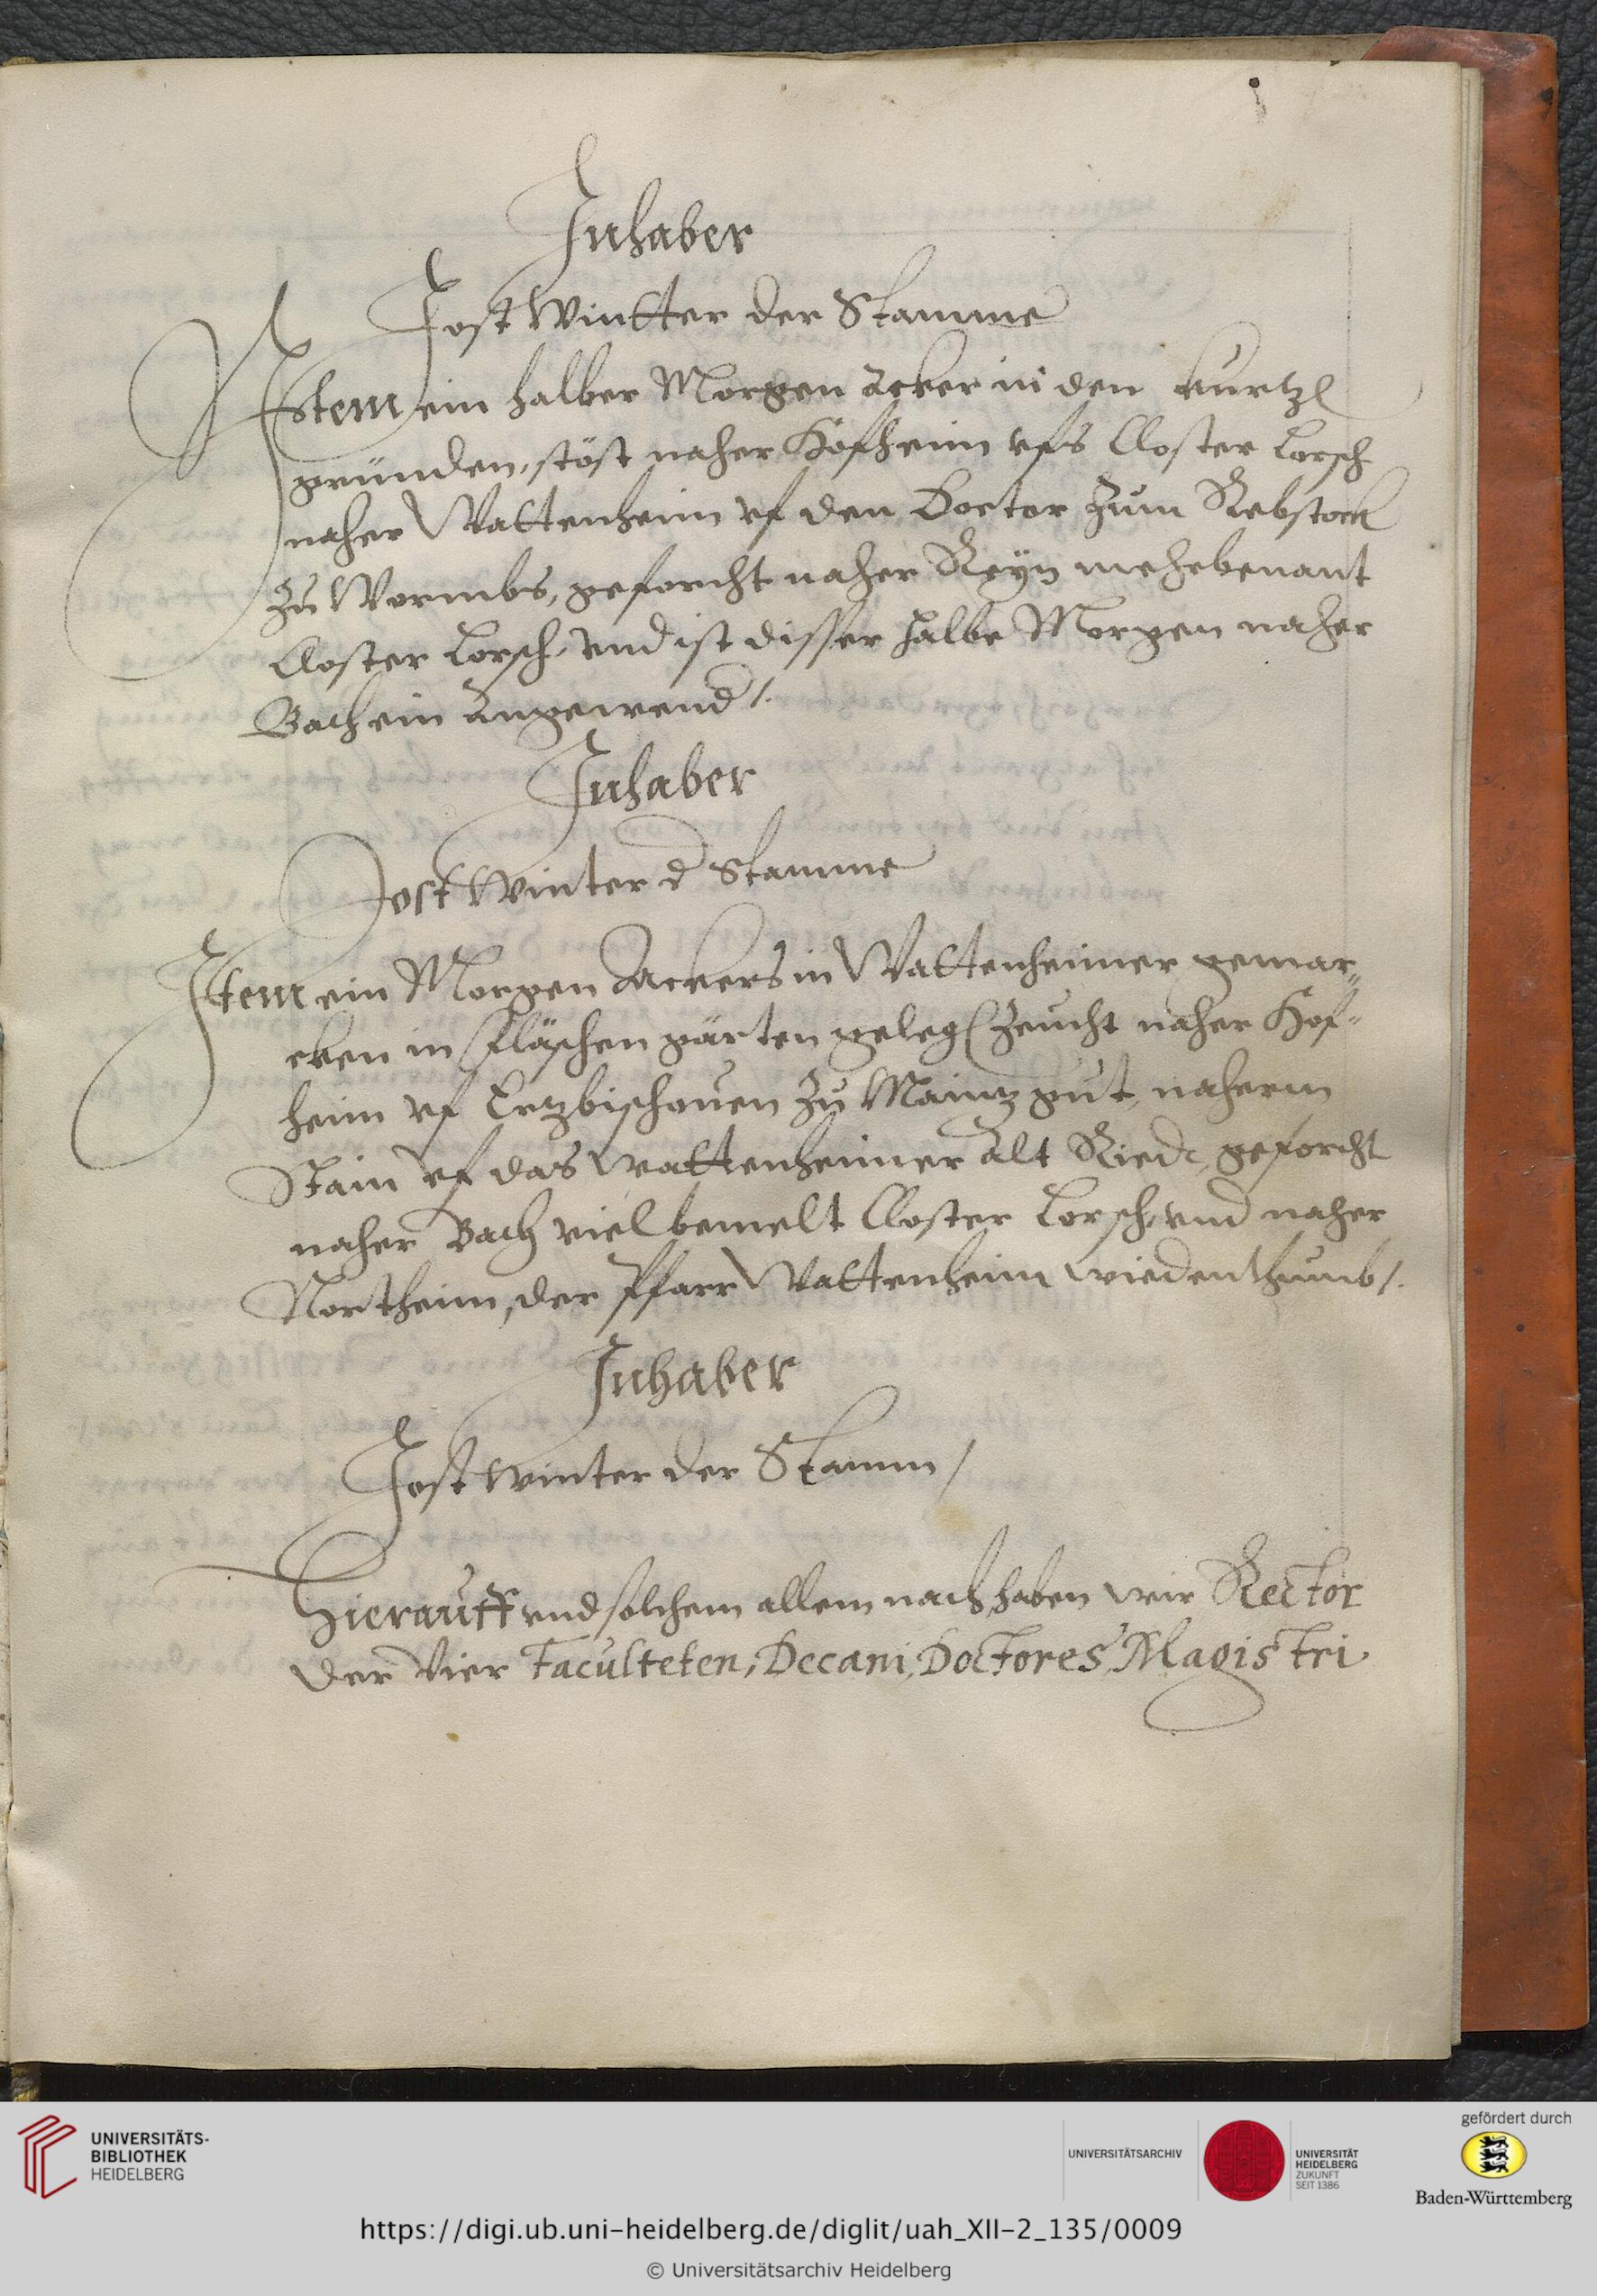 Inhaber
Jost Wintter der Stamme
Item ein halber Morgen äcker in den kurtzen
gründen, stöst naher Hofheim vfs Closter Lorsch
naher Wattenheim vf den Doctor zum Rebstock
zu Wormbs, geforcht naher Reyn mehrbenant
Closter Lorsch, vnd ist disser halbe Morgen naher
Bach ein angewend /.
Inhaber
Jost Winter d Stamme
Item ein Morgen Ackers in Wattenheimer gemar„
cken in fläschen gärten gelegen Zeucht naher Hof-
heim vf Ertzbischouen zu Maintz gut, naherm
Stain vf das Wattenheimer Alt Riedt, geforcht
naher Bach vielbemelt Closter Lorsch, vnd naher
Northeim, der Pfarr Wattenheim wiedenthumb /.
Inhaber
Jost Winter der Stamm /
Hierauff vnd solchem allem nach, haben wir Rector
der Vier Faculteten, Decani, Doctores, Magistri
UNIVERSITÄTS-
BIBLIOTHEK
HEIDELBERG
UNIVERSITÄTSARCHIV
UNIVERSITÄT
HEIDELBERG
ZUKUNFT
SEIT 1386
gefördert durch
Baden-Württemberg
https://digi.ub.uni-heidelberg.de/diglit/uah_XII-2_135/0009
© Universitätsarchiv Heidelberg